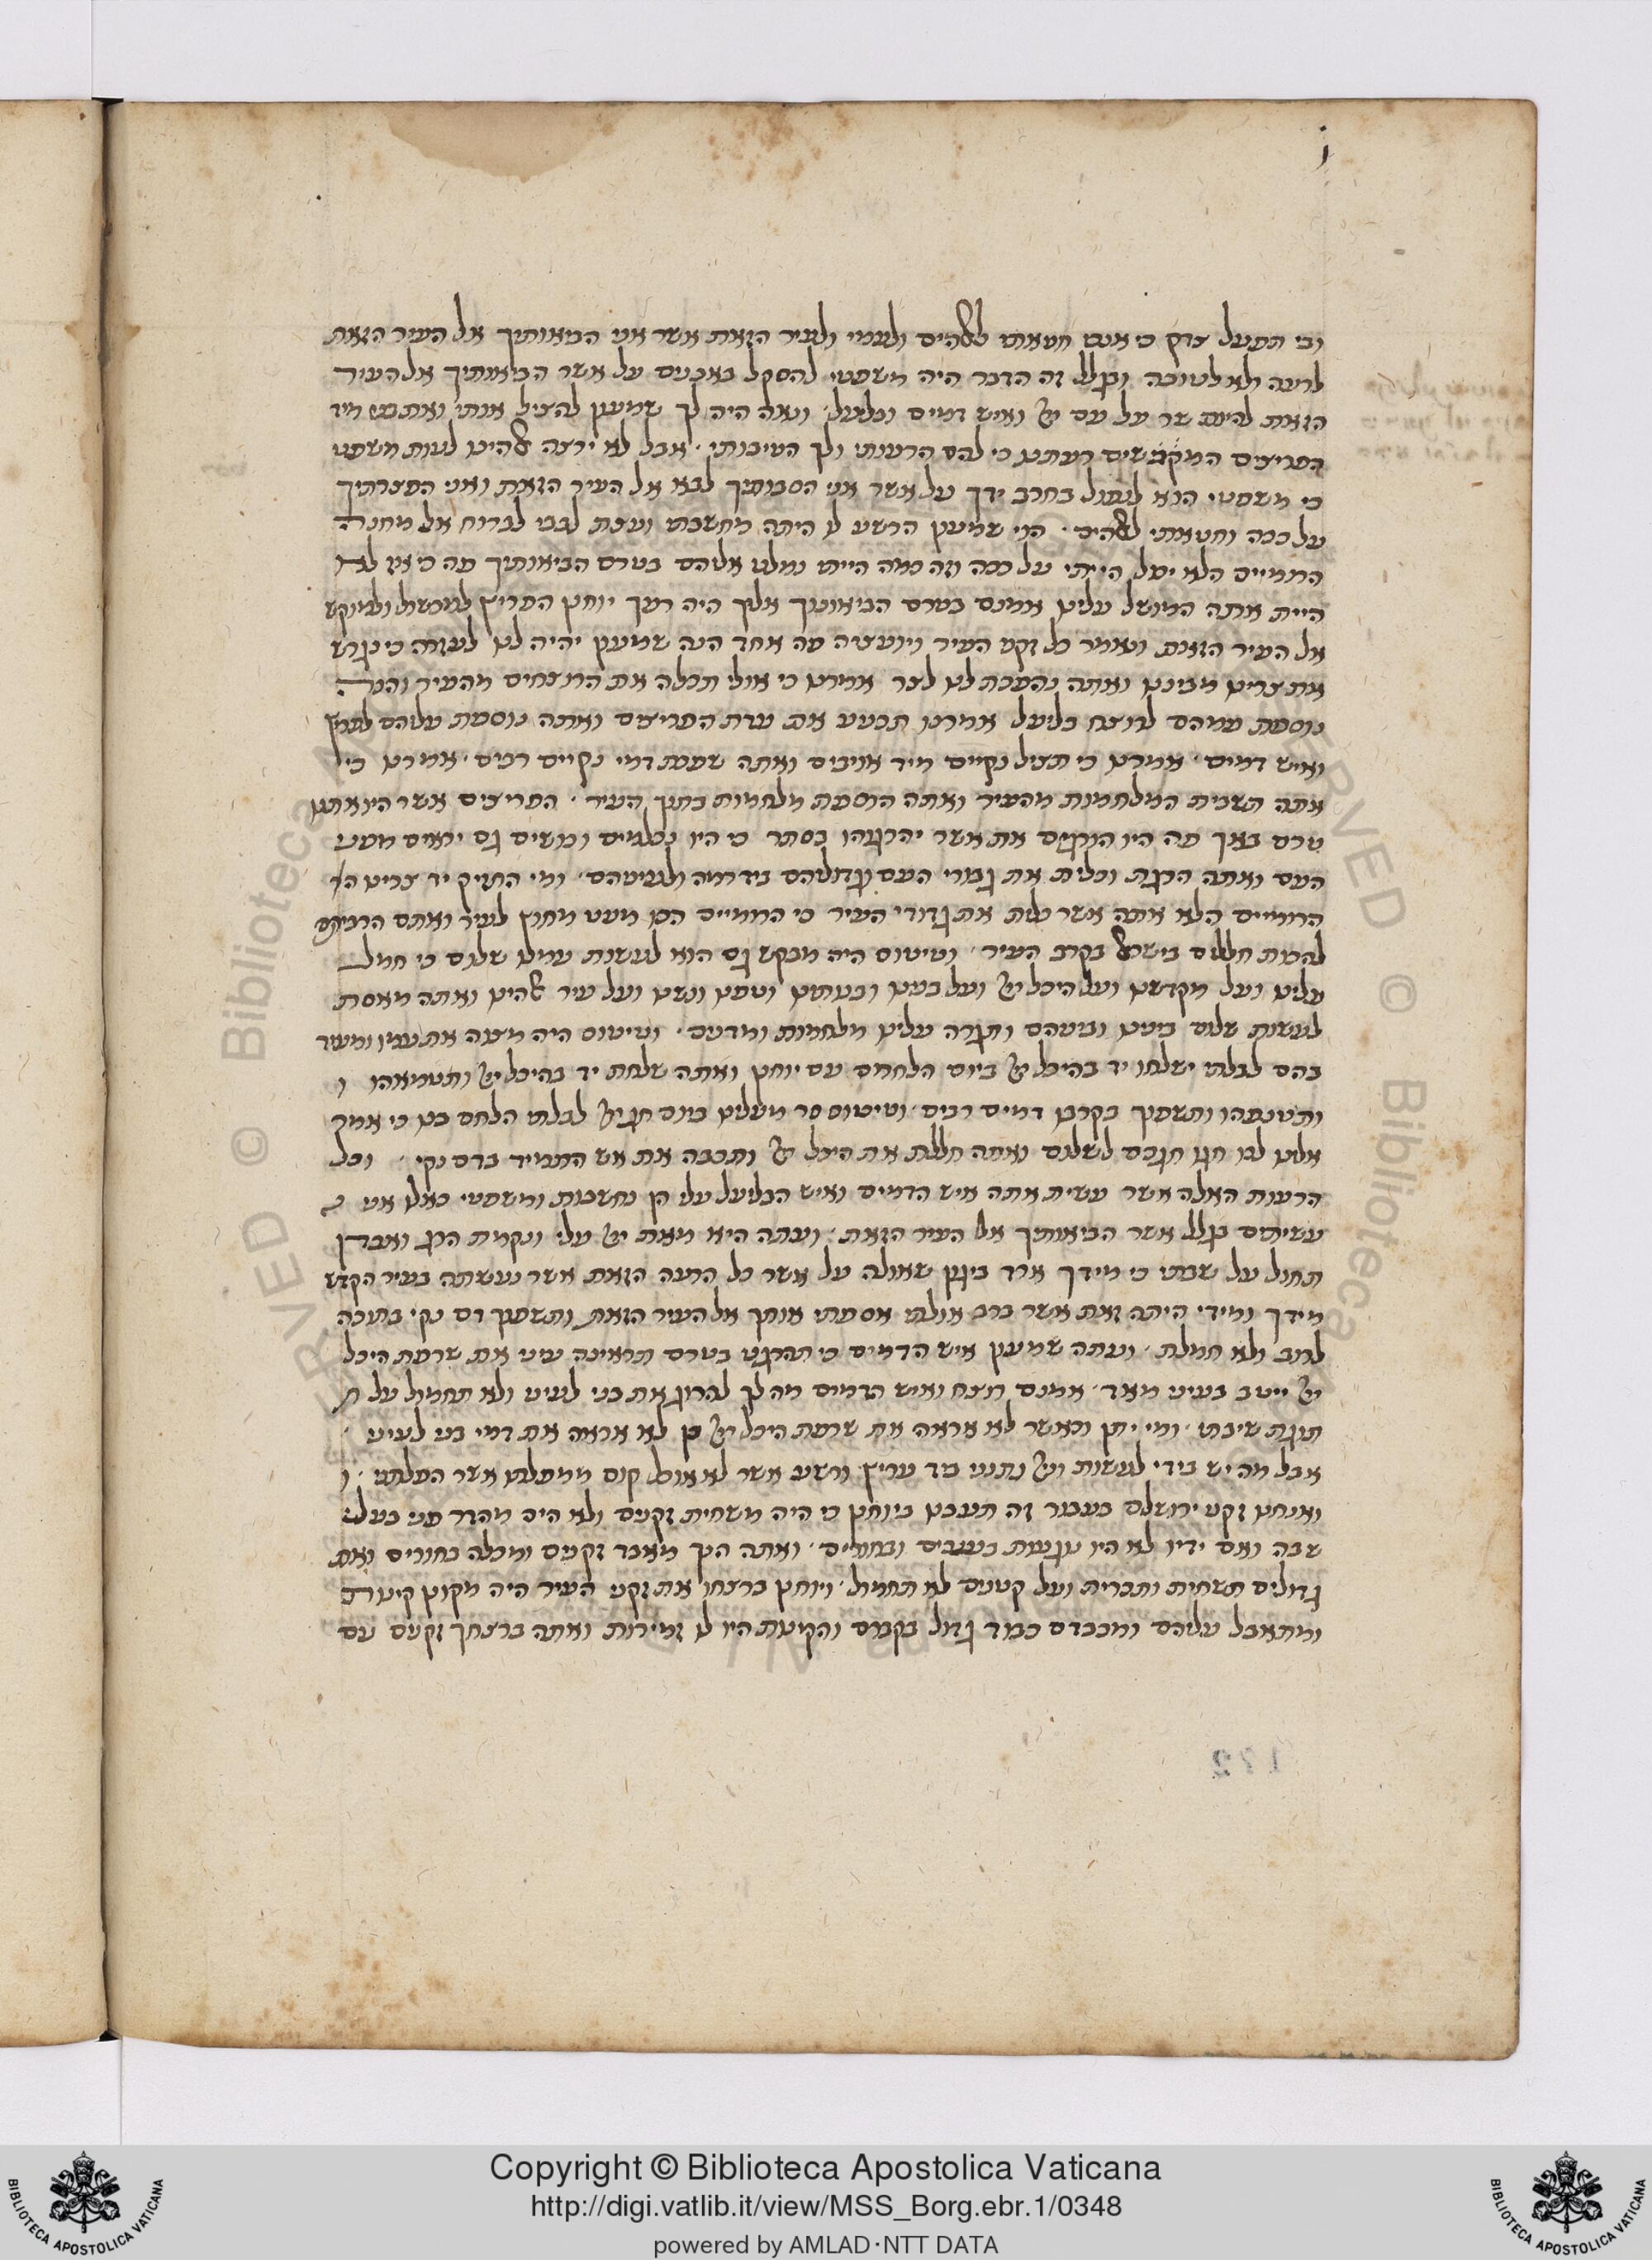 וכי תפעל צדק כי אנכי חטאתי לאלהים ולעמי ולעיר הזאת אשר אני הבאותיך אל העיר הזאת
לרעה ולא לטובה ובגלל זה הדבר היה משפטי להסקל באבנים על אשר הביאותיך אל העיר
הזאת להיות שר על עם ייי ואיש דמים ובליעל ונאה היה לך שמעון להציל אותי ואת בני מיד
הפריצים המקשים רעתנו כי להם הרעותי ולך הטיבותי אבל לא ירצה אלהינו לעות משפט
כי משפטי הוא לנפול בחרב ידך על אשר אני הסבותיך לבא אל העיר הזאת ואני הפצרתיך
על ככה וחטאתי לאלהים הוי שמעון הרשע לו היתה מחשבתי ועצת לבבי לברוח אל מחנה
הרומיים הלא יכול הייתי על ככה וזה כמה הייתי נמלט אליהם בטרם הביאותיך פה כי אז לא
היית אתה המושל עלינו אמנם בטרם הביאונוך אליך היה רעך יוחנן הפריץ למכשול ולמוקש
אל העיר הזאת ונאמר כל זקני העיר ויועציה פה אחד הנה שמעון יהיה לנו לעזרה כי יגרש
את צרינו מבינינו ואתה נהפכת לנו לצר אמרנו כי אולי תכלה את הרוצחים מהעיר והנה
נוספת עמהם לרוצח בליעל אמרנו תכניע את עדת הפריצים ואתה נוספת עליהם לפריץ
ואיש דמים אמרנו כי תציל נקיים מיד אויבים ואתה שפכת דמי נקיים רבים אמרנו כי
אתה תשבית המלחמות מהעיר ואתה הוספת מלחמות בתוך העיר הפריצים אשר היו אתנו
טרם באך פה היו הורגים את אשר יהרגוהו בסתר כי היו נכלמים ובושים גם יראים מפני
העם ואתה הרגת וכלית את גבורי העם וגדוליהם ביד רמה ולעיניהם ומי החזיק יד צרינו הן
הרומיים הלא אתה אשר כלית את גדודי העיר כי הרומיים הכו מעט מחוץ לעיר ואתם הרביתם
להכות חללים בישראל בקרב העיר וטיטוס היה מבקש גם הוא לעשות עמנו שלום כי חמל
עלינו ועל מקדשנו ועל היכל ייי ועל בנינו ובנותינו וטפנו ונשינו ועל עיר אלהינו ואתה מאסת
לעשות שלום בינינו וביניהם ותגרה עלינו מלחמות ומדנים וטיטוס היה מצוה את עמו ומעיד
בהם לבלתי ישלחו יד בהיכל ייי ביום הלחמם עם יוחנן ואתה שלחת יד בהיכל ייי ותטמאהו
ותטנפהו ותשפוך בקרבו דמים רבים וטיטוס סר מעלינו ביום חג ייי לבלתי הלחם בנו כי אמר
אלינו לכו חגו חגכם לשלום ואתה חללת את היכל ייי ותכבה את אש התמיד בדם נקי וכל
הרעות האלה אשר עשית אתה איש הדמים ואיש הבליעל עלי הן נחשבות ומשפטי כאלו אני
עשיתים בגלל אשר הביאותיך אל העיר הזאת ועתה היא מאת ייי עלי ונקמת הרג ואבדן
תחול על שבתי כי מידך ארד ביגון שאולה על אשר כל הרעה הזאת אשר נעשתה בעיר הקדש
מידך ומידי היתה זאת אשר ברב אולתי אספתי אותך אל העיר הזאת ותשפוך דם נקי בתוכה
לרוב ולא חמלת ועתה שמעון איש הדמים כי תהרגני בטרם תראינה עיני את שרפת היכל
ייי ייטב בעיני מאד אמנם רוצח ואיש הדמים מה לך להרוג את בני לעיני ולא תחמול על
תוגת שיבתי ומי יתן וכאשר לא אראה את שרפת היכל ייי כן לא אראה את דמי בני לעיני
אבל מה יש בידי לעשות וייי נתנני ביד עריץ ורשע אשר לא אוכל קום ממפלתי אשר הפלתני
ואנחנו זקני ירושלם בעבור זה תעבנו ביוחנן כי היה משחית זקנים ולא היה מהדר פני בעלי
שבה ואם ידיו לא היו נוגעות בענבים ובחורים ואתה הנך מאבד זקנים ומכלה בחורים ואת
גדולים תשחית ותכרית ועל קטנים לא תחמול ויוחנן ברצחו את זקני העיר היה מקונן קינות
ומתאבל עליהם ומכבדם כבוד גדול בקברם והקינות היו לו זמירות ואתה ברצחך זקנים עם
172
Copyright © Biblioteca Apostolica Vaticana
http://digi.vatlib.it/view/MSS_Borg.ebr.1/0348
powered by AMLAD·NTT DATA
BIBLIOTECA APOSTOLICA VATICANA
BIBLIOTECA APOSTOLICA VATICANA